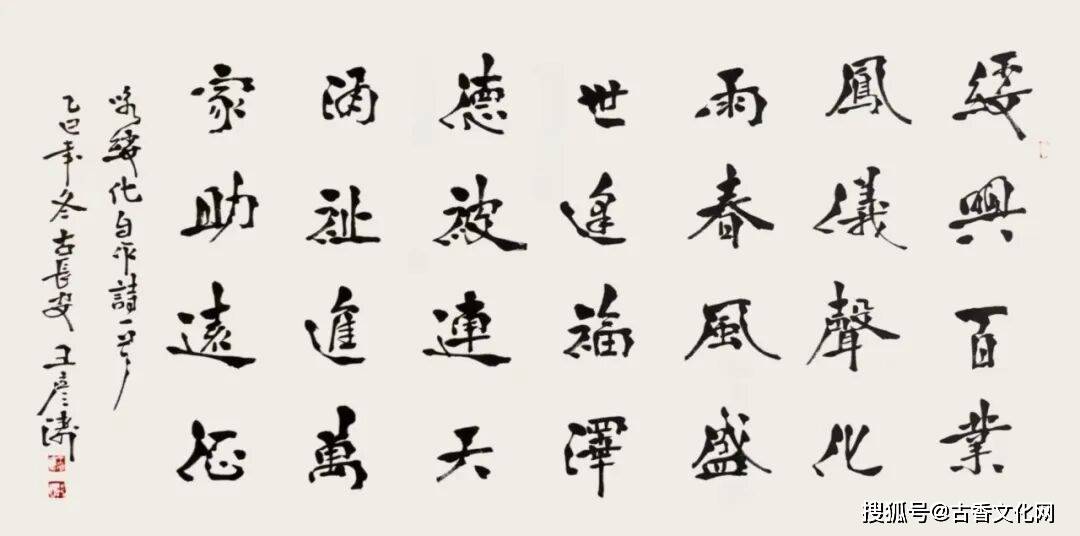 綏興百業
鳳儀聲化
雨春風盛
世逢福澤
德被連天
涌祉進萬
家助遠征
咏綏化自作詩一首
乙巳年冬古長安王彥濤
搜狐号@古香文化网